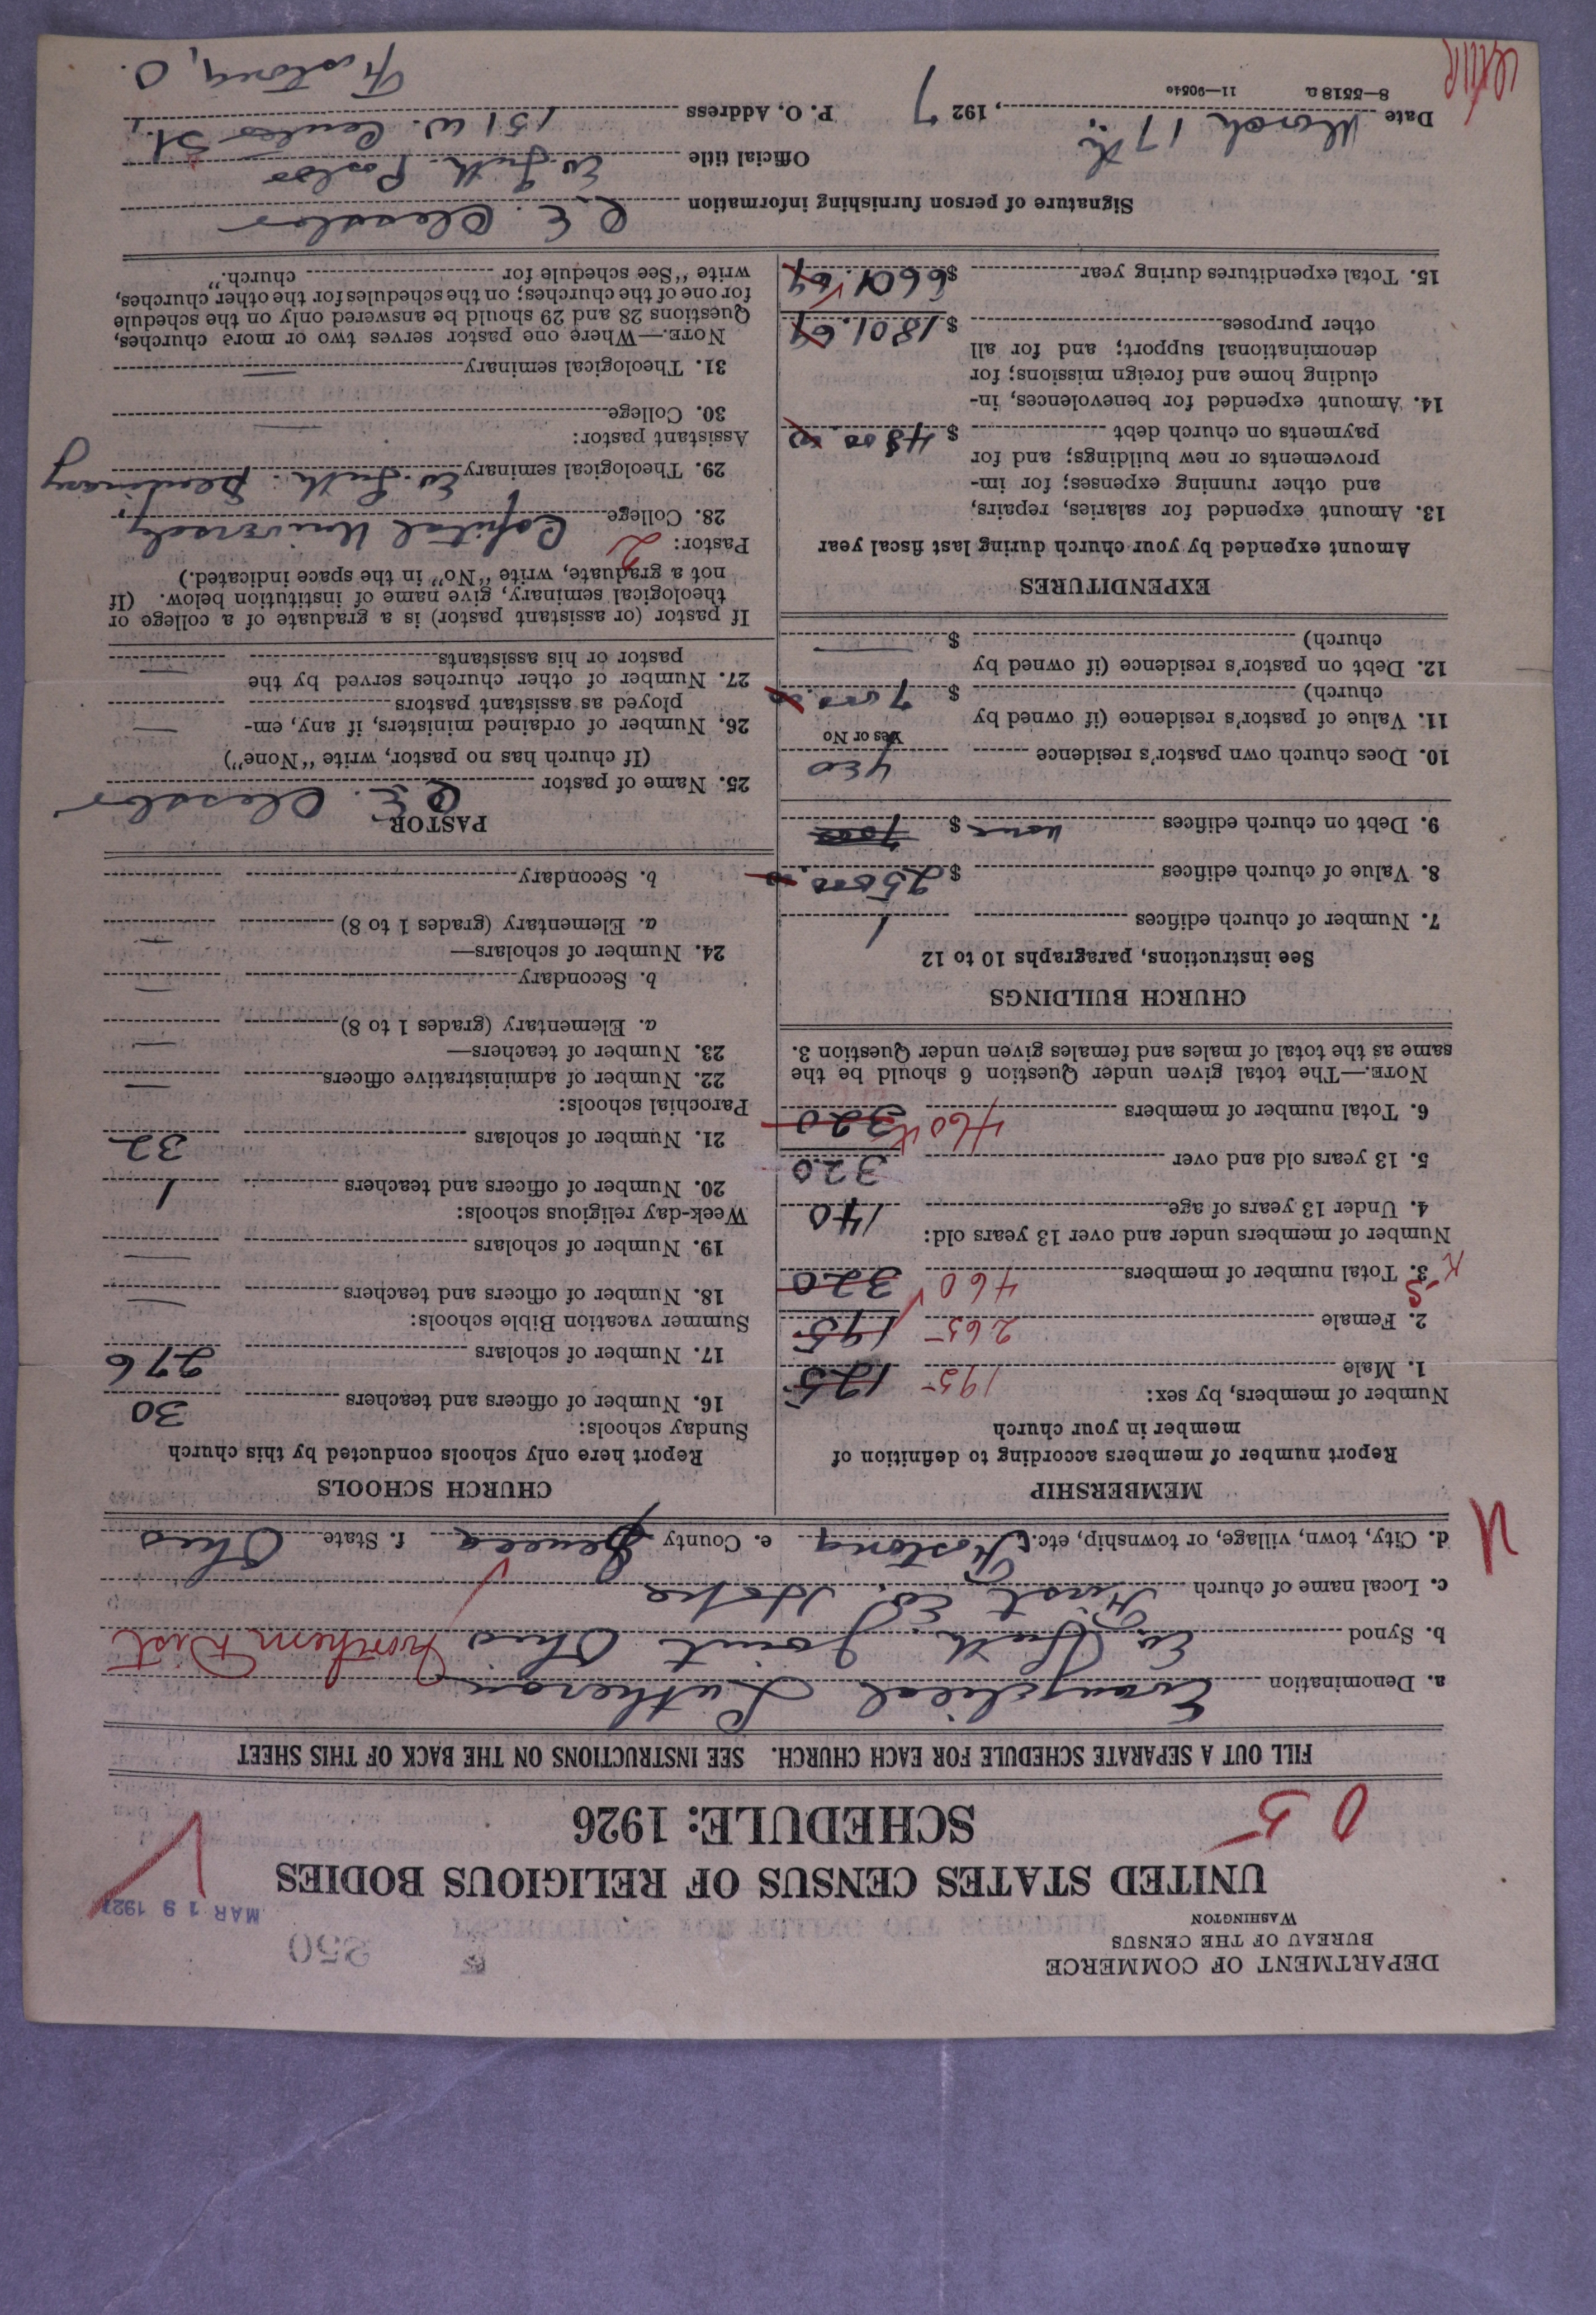 DEPARTMENT OF COMMERCE
BUREAU OF THE CENSUS
WASHINGTON
250
MAR 19 1927
UNITED STATES CENSUS OF RELIGIOUS BODIES
SCHEDULE: 1926
0 5
FILL OUT A SEPARATE SCHEDULE FOR EACH CHURCH. SEE INSTRUCTIONS ON THE BACK OF THIS SHEET
a. Denomination Evangelical Lutheran
b. Synod Ev. Luth. Joint Ohio Northern Dist
c. Local name of church First Ev. Hope
d. City, town, village, or township, etc. Fostoria e. County Seneca f. State Ohio
MEMBERSHIP
Report number of members according to definition of
member in your church
Number of members, by sex:
1. Male 195 125
2. Female 265 195
3. Total number of members 460 320
Number of members under and over 13 years old:
4. Under 13 years of age 140
5. 13 years old and over 320
6. Total number of members 460 320
NOTE.—The total given under Question 6 should be the
same as the total of males and females given under Question 3.
CHURCH BUILDINGS
See instructions, paragraphs 10 to 12
7. Number of church edifices 1
8. Value of church edifices $ 25000.00
9. Debt on church edifices none $ 7000
10. Does church own pastor's residence yes
Yes or No
11. Value of pastor's residence (if owned by
church) $ 7000.00
12. Debt on pastor's residence (if owned by
church) $ —
EXPENDITURES
Amount expended by your church during last fiscal year
13. Amount expended for salaries, repairs,
and other running expenses; for im-
provements or new buildings; and for
payments on church debt $ 4800.00
14. Amount expended for benevolences, in-
cluding home and foreign missions; for
denominational support; and for all
other purposes $ 1801.64
15. Total expenditures during year $ 6601.64
CHURCH SCHOOLS
Report here only schools conducted by this church
Sunday schools:
16. Number of officers and teachers 30
17. Number of scholars 276
Summer vacation Bible schools:
18. Number of officers and teachers —
19. Number of scholars —
Week-day religious schools:
20. Number of officers and teachers 1
21. Number of scholars 32
Parochial schools:
22. Number of administrative officers —
23. Number of teachers—
a. Elementary (grades 1 to 8) —
b. Secondary —
24. Number of scholars—
a. Elementary (grades 1 to 8) —
b. Secondary
PASTOR
25. Name of pastor R. E.
(If church has no pastor, write "None")
26. Number of ordained ministers, if any, em-
ployed as assistant pastors —
27. Number of other churches served by the
pastor or his assistants —
If pastor (or assistant pastor) is a graduate of a college or
theological seminary, give name of institution below. (If
not a graduate, write "No" in the space indicated.)
Pastor: 2
28. College Capital University
29. Theological seminary Ev. Luth. Seminary
Assistant pastor:
30. College —
31. Theological seminary —
NOTE.—Where one pastor serves two or more churches,
Questions 28 and 29 should be answered only on the schedule
for one of the churches; on the schedules for the other churches,
write "See schedule for church."
Signature of person furnishing information R. E.
Official title Ev. Luth. Pastor
Date March 17th, 1927 P. O. Address 151 W. Center St.
Fostoria, O.
8—5518 a 11—9054c